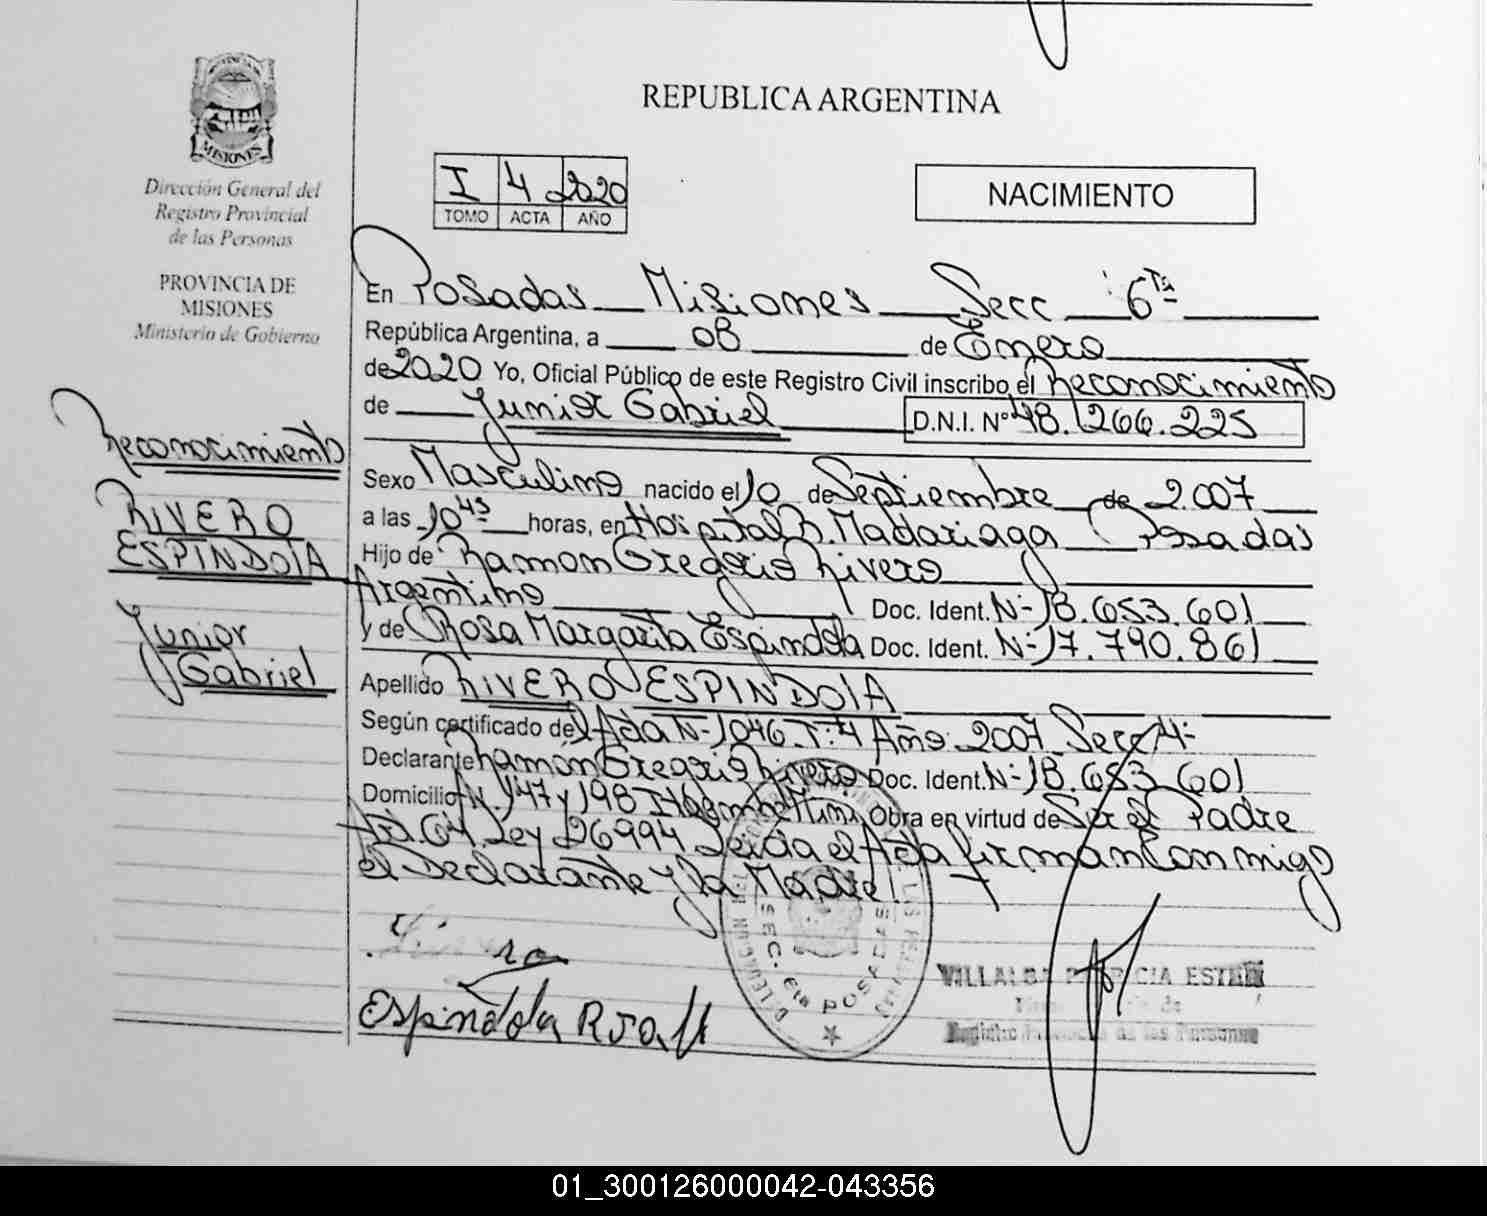 REPUBLICA ARGENTINA
PROVINCIA DE
MISIONES
Dirección General del
Registro Provincial
de las Personas
PROVINCIA DE
MISIONES
Ministerio de Gobierno
I 4 2020
TOMO ACTA AÑO
NACIMIENTO
En Posadas Misiones Secc 6ta
República Argentina, a 08 de Enero
de 2020 Yo, Oficial Público de este Registro Civil inscribo el Reconocimiento
de Junior Gabriel D.N.I. Nº 48.266.225
Reconocimiento
RIVERO
ESPINDOLA
Junior
Gabriel
Sexo Masculino nacido el 10 de Septiembre de 2.007
a las 10 45 horas, en Hospital R. Madariaga Posadas
Hijo de Ramon Gregorio Rivero
Argentino Doc. Ident. Nº 18.653.601
y de Rosa Margarita Espindola Doc. Ident. Nº 17.790.861
Apellido RIVERO ESPINDOLA
Según certificado del Acta Nº 1046 Tº 4 Año 2007 Secc 4º
Declarante Ramón Gregorio Rivero Doc. Ident. Nº 18.653.601
Domicilio 147 y 198 Itaembé Miní Obra en virtud de Ser el Padre
Art. 64 Ley 26994 Leida el Acta firman Conmigo
el Declarante y la Madre
Espindola Rosa M
SEC. 6ta POSADAS
Registro de las Personas
01_300126000042-043356